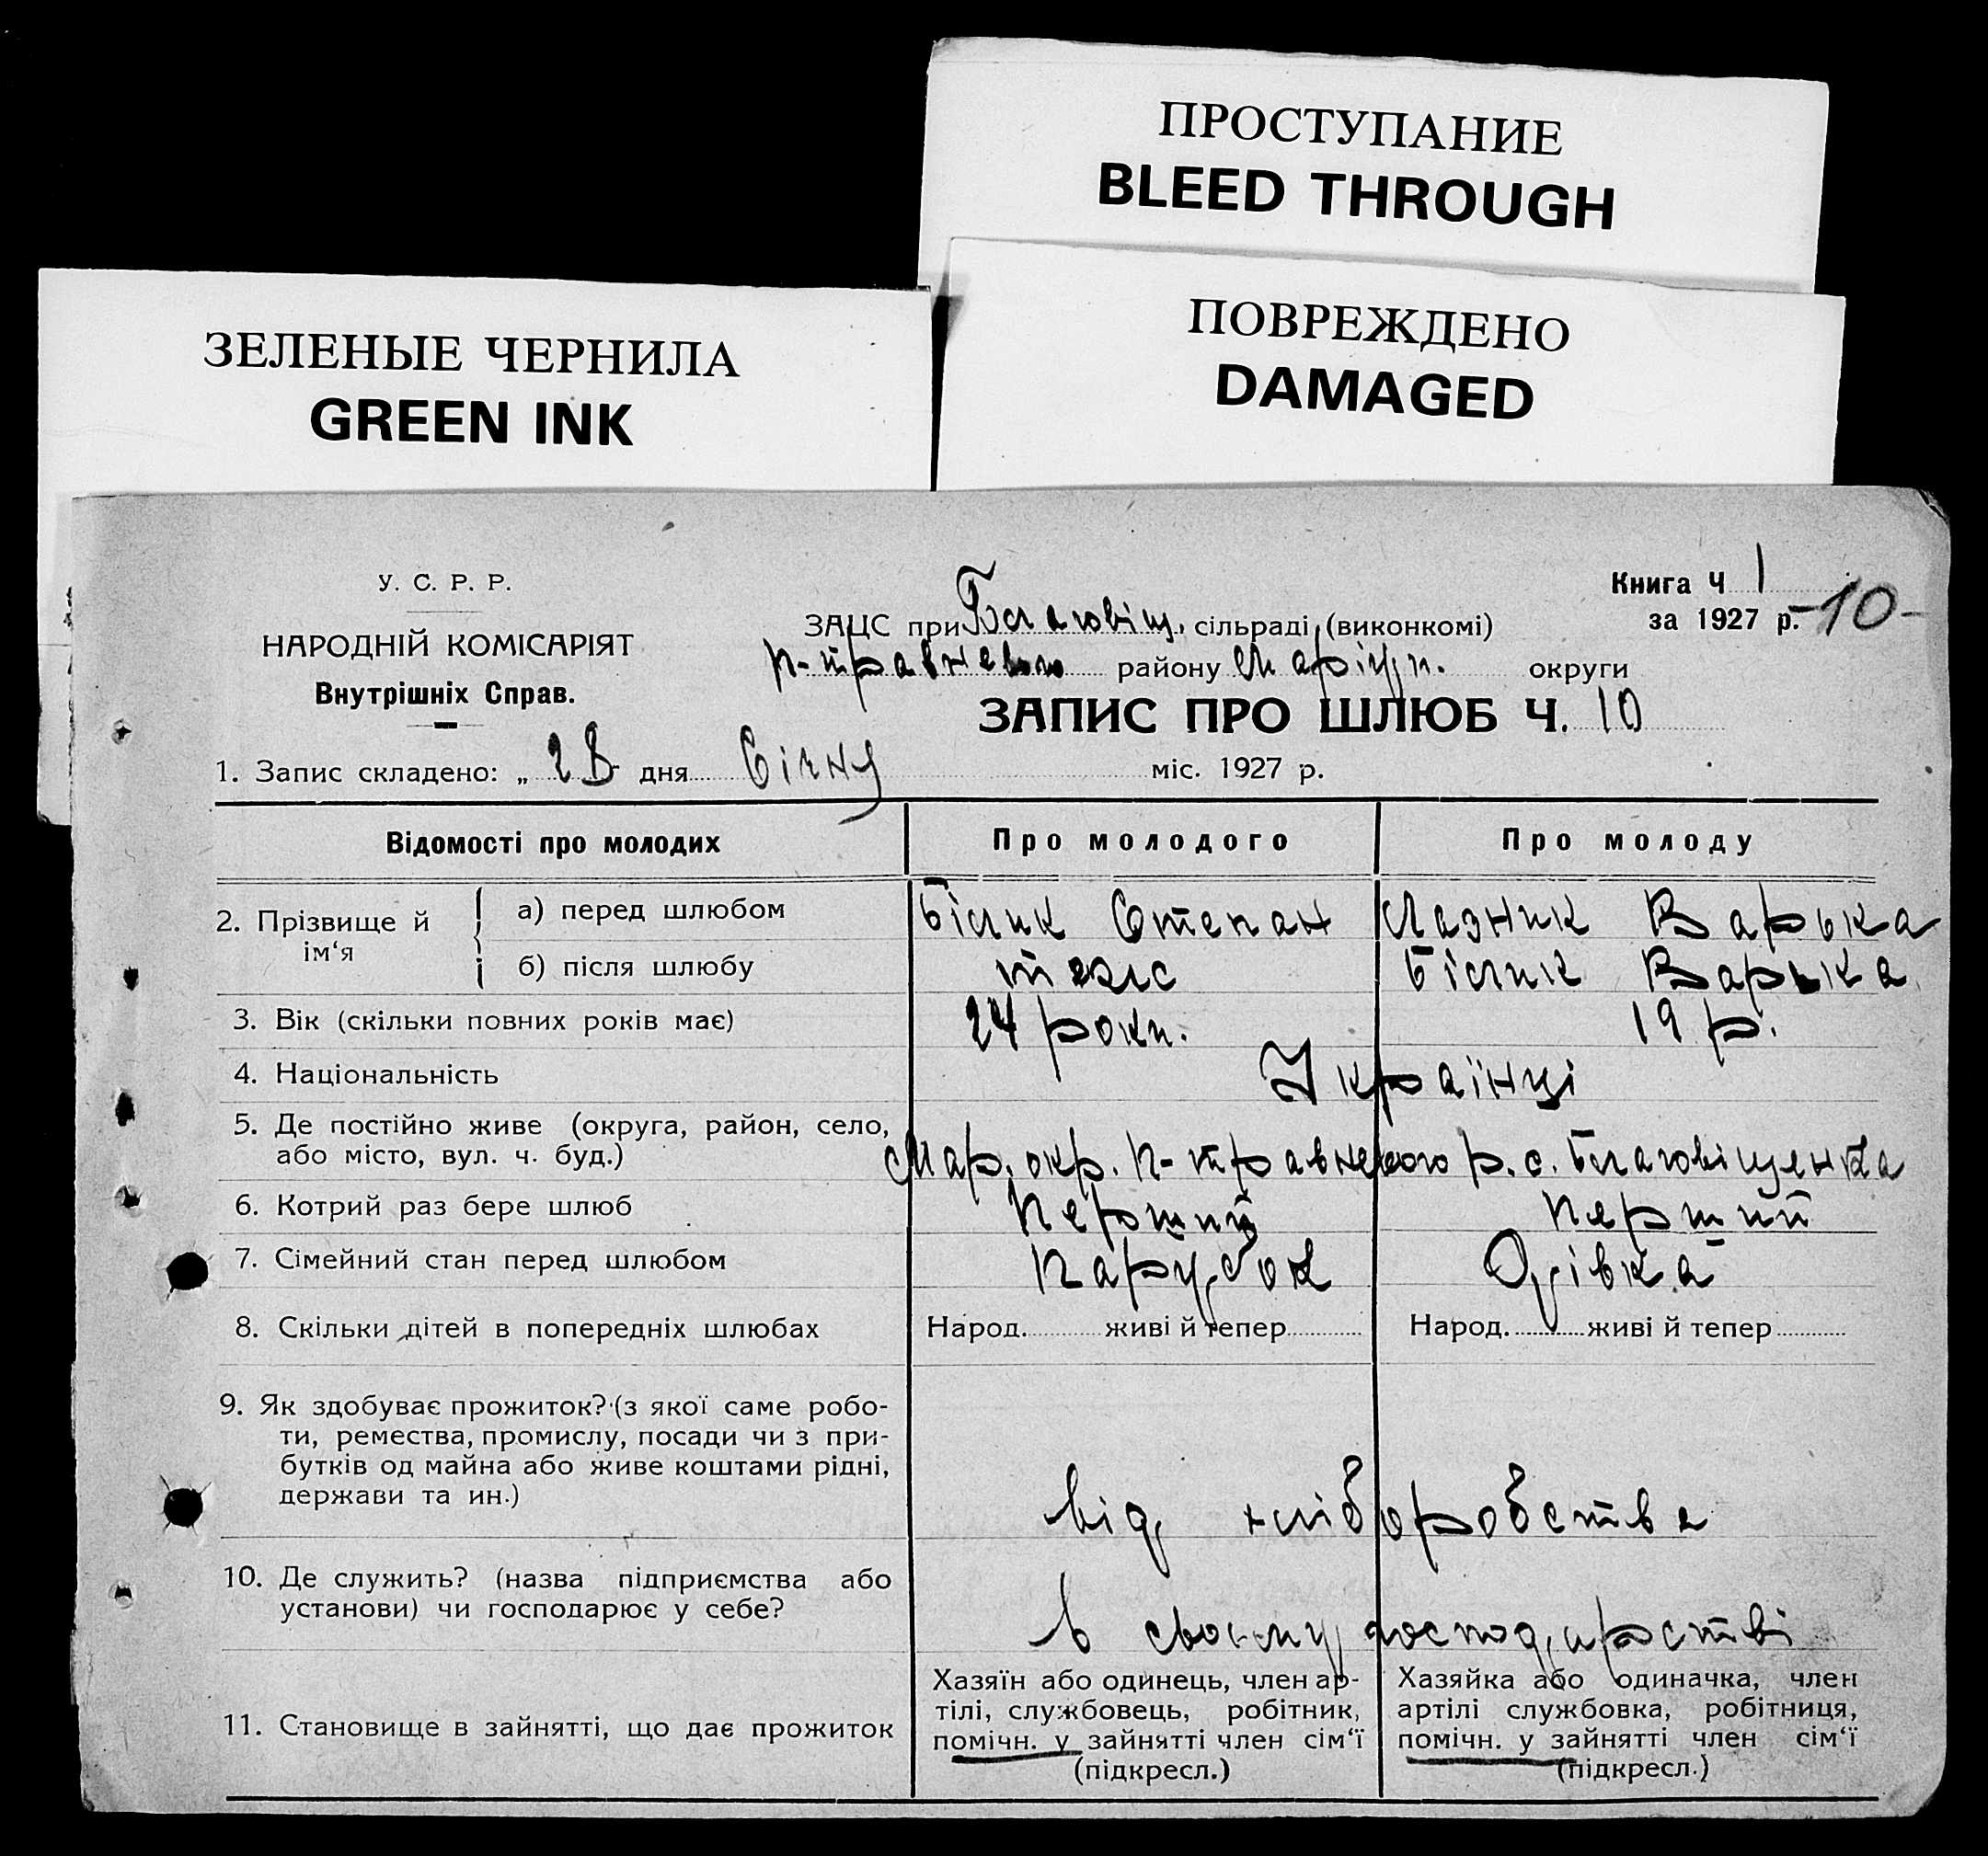 ПРОСТУПАНИЕ
BLEED THROUGH
ПОВРЕЖДЕНО
DAMAGED
ЗЕЛЕНЫЕ ЧЕРНИЛА
GREEN INK
У. С. Р. Р.
НАРОДНІЙ КОМІСАРІЯТ
Внутрішніх Справ.
Книга Ч 1
за 1927 р. -10-
ЗАЦС при Благовіщ. сільраді (виконкомі)
П-травневого району Маріуп. округи
ЗАПИС ПРО ШЛЮБ Ч. 10
1. Запис складено: „ дня Січня міс. 1927 р.
Відомості про молодих Про молодого Про молоду
2. Прізвище й ім‘я а) перед шлюбом Білик Степан Лазник Варька
б) після шлюбу теж Білик Варька
3. Вік (скільки повних років має) 24 роки. 19 р.
4. Національність Українці
5. Де постійно живе (округа, район, село,
або місто, вул. ч. буд.) Мар. окр. П-травневого р. с. Благовіщенка
6. Котрий раз бере шлюб Перший перший
7. Сімейний стан перед шлюбом Парубок Дівка
8. Скільки дітей в попередніх шлюбах Народ. живі й тепер Народ. живі й тепер
9. Як здобуває прожиток? (з якої саме робо-
ти, ремества, промислу, посади чи з при-
бутків од майна або живе коштами рідні,
держави та ин.) від хліборобства
10. Де служить? (назва підприємства або
установи) чи господарює у себе? в своєму господарстві
11. Становище в зайнятті, що дає прожиток
Хазяїн або одинець, член ар-
тілі, службовець, робітник,
помічн. у зайнятті член сім‘ї
(підкресл.)
Хазяйка або одиначка, член
артілі службовка, робітниця,
помічн. у зайнятті член сім‘ї
(підкресл.)